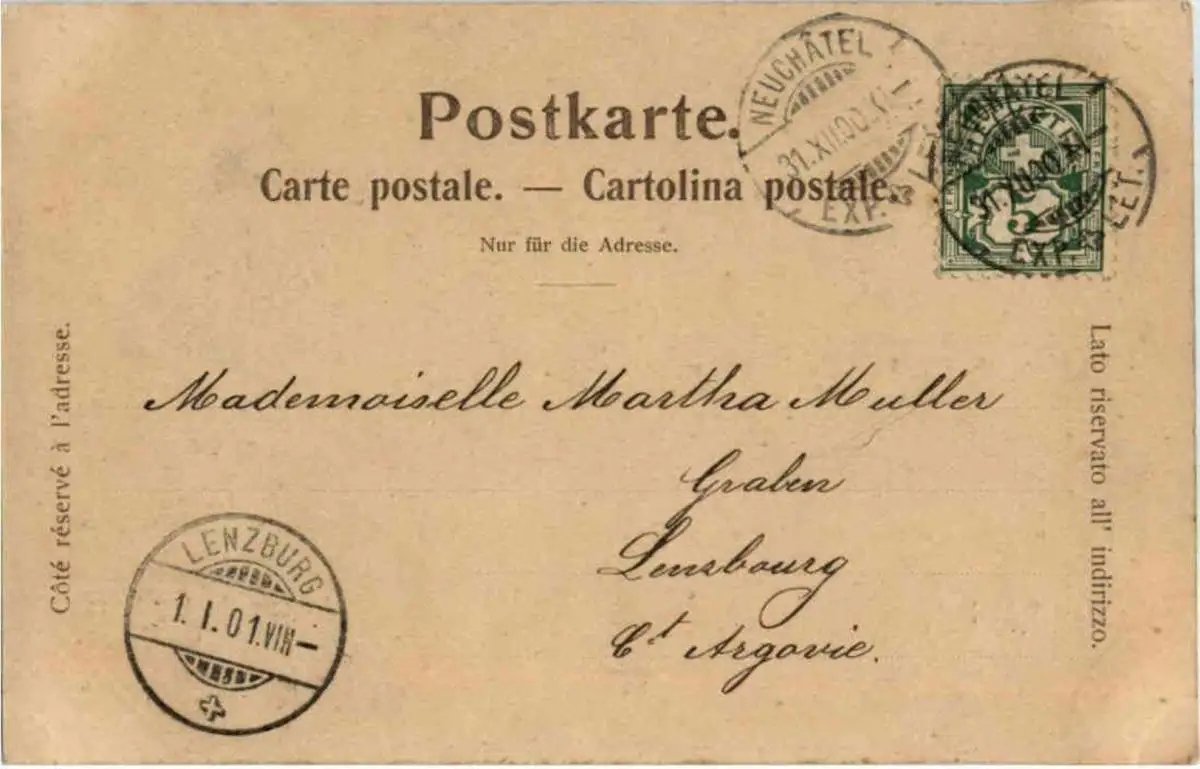 Postkarte.
Carte postale. — Cartolina postale.
Nur für die Adresse.
NEUCHÂTEL
31.XII.00.XI
EXP. LET.
NEUCHÂTEL
31.XII.00.XI
EXP. LET.
HELVETIA
5
Côté réservé à l'adresse.
Lato riservato all' indirizzo.
Mademoiselle Martha Muller
Graben
Lenzbourg
Ct Argovie.
LENZBURG
1.I.01.VIII—